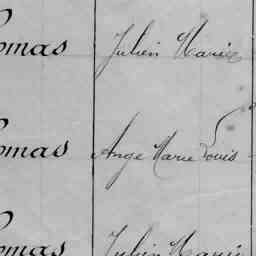 omas Julien Marie
omas Ange Marie Louis
omas Julien Marie